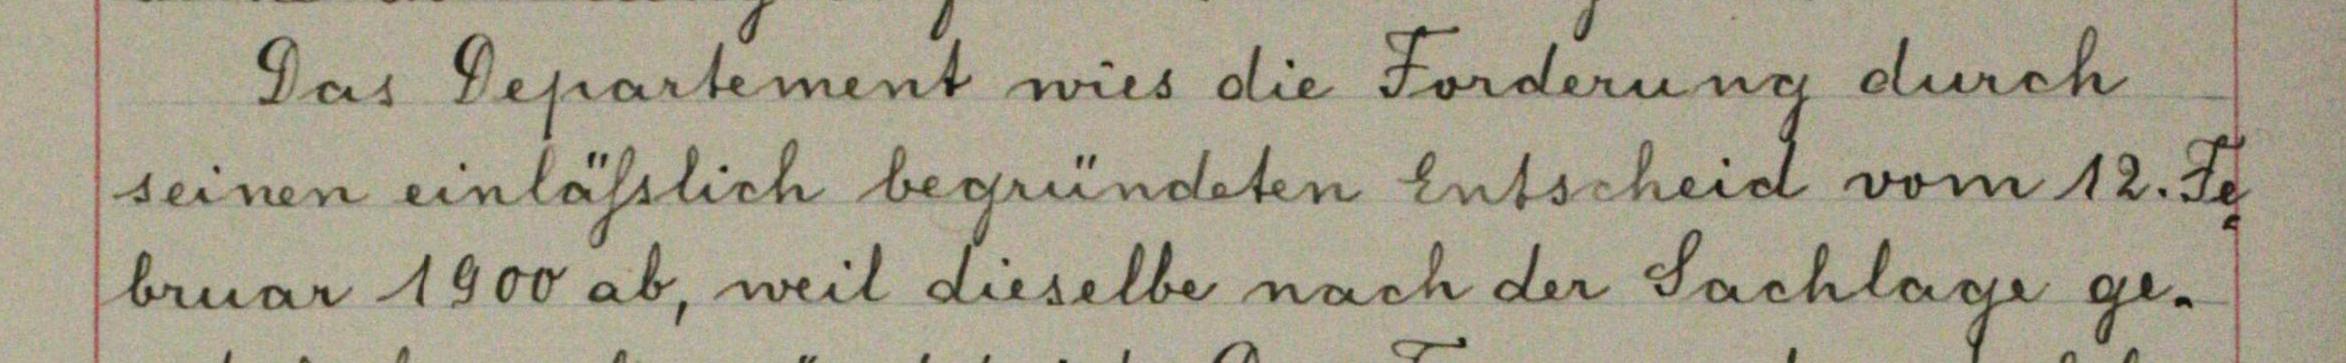 Das Departement wies die Forderung durch
seinen einläßlich begründeten Entscheid vom 12. Fe-
bruar 1900 ab, weil dieselbe nach der Sachlage ge-